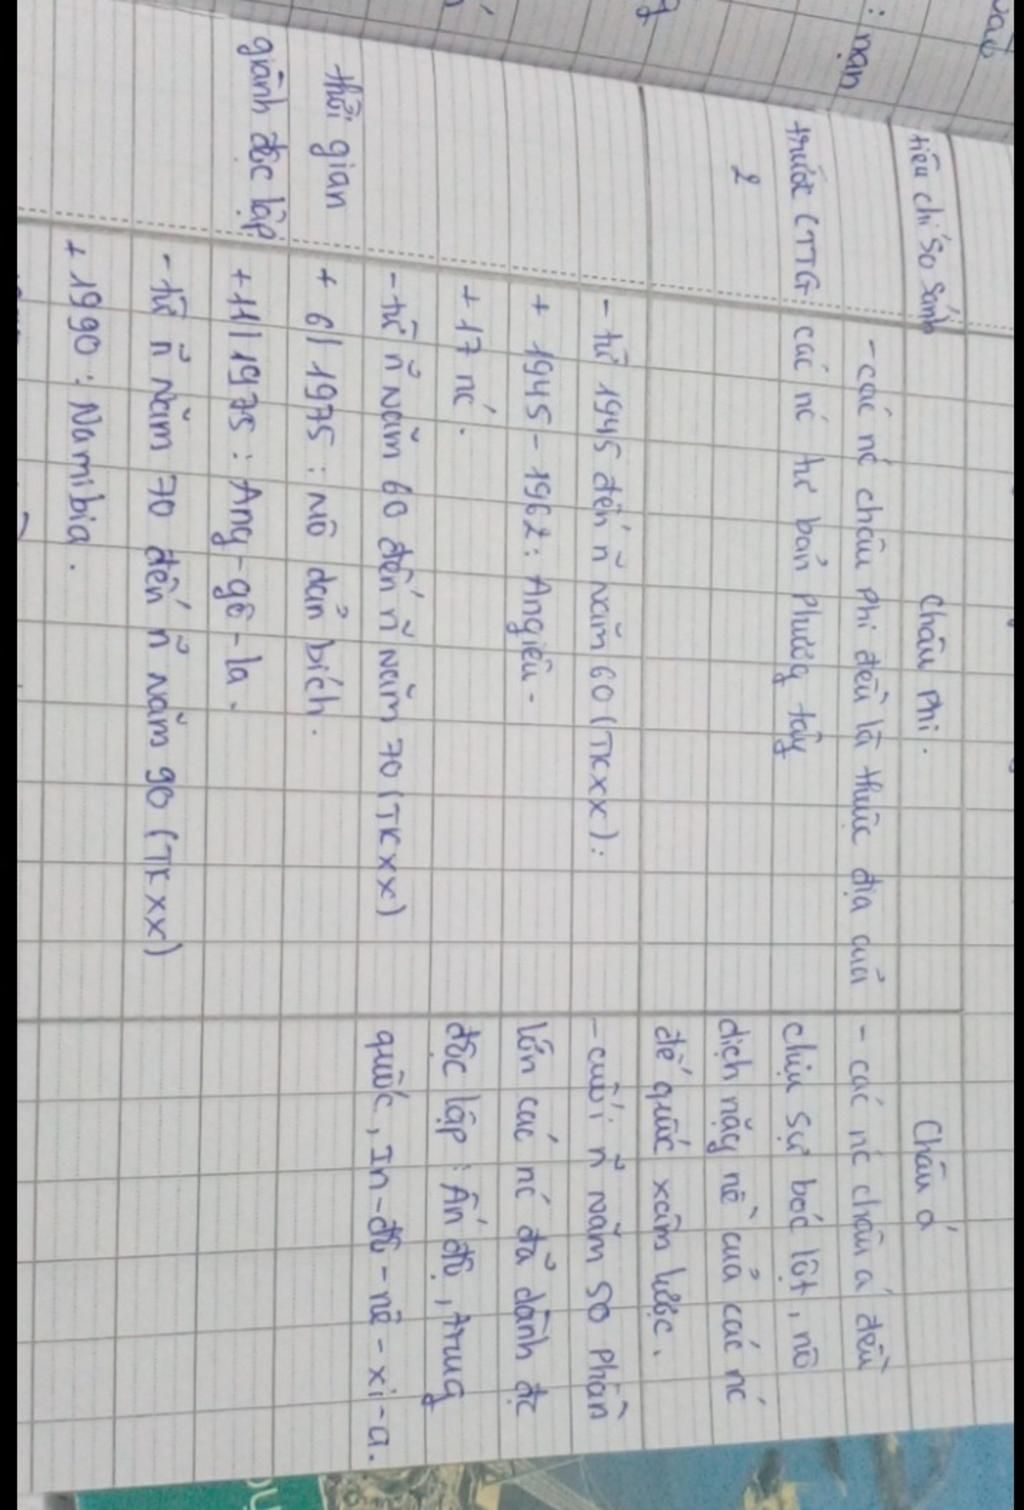 tiêu chí so sánh
châu Phi.
Châu á
trước CTTG
2
- các nć châu Phi đều là thuộc địa của
các nć tư bản Phương tây
- các nć châu á đều
chịu sự bóc lột, nô
dịch nặng nề của các nć
đế quốc xâm lược.
thời gian
giành độc lập
- từ 1945 đến ñ năm 60 (TK XX):
+ 1945 - 1962: Angiêu -
+ 17 nć.
- từ ñ năm 60 đến ñ năm 70 (TK XX)
+ 6/1975: Mô dăn bích.
+ 11/1975: Ang-gô-la.
- từ ñ năm 70 đến ñ năm 90 (TK XX)
+ 1990: Namibia.
- cuối ñ năm 50 phần
lớn các nć đã dành đc
độc lập: Ấn độ, trung
quốc, In-đô-nê-xi-a.
nạn